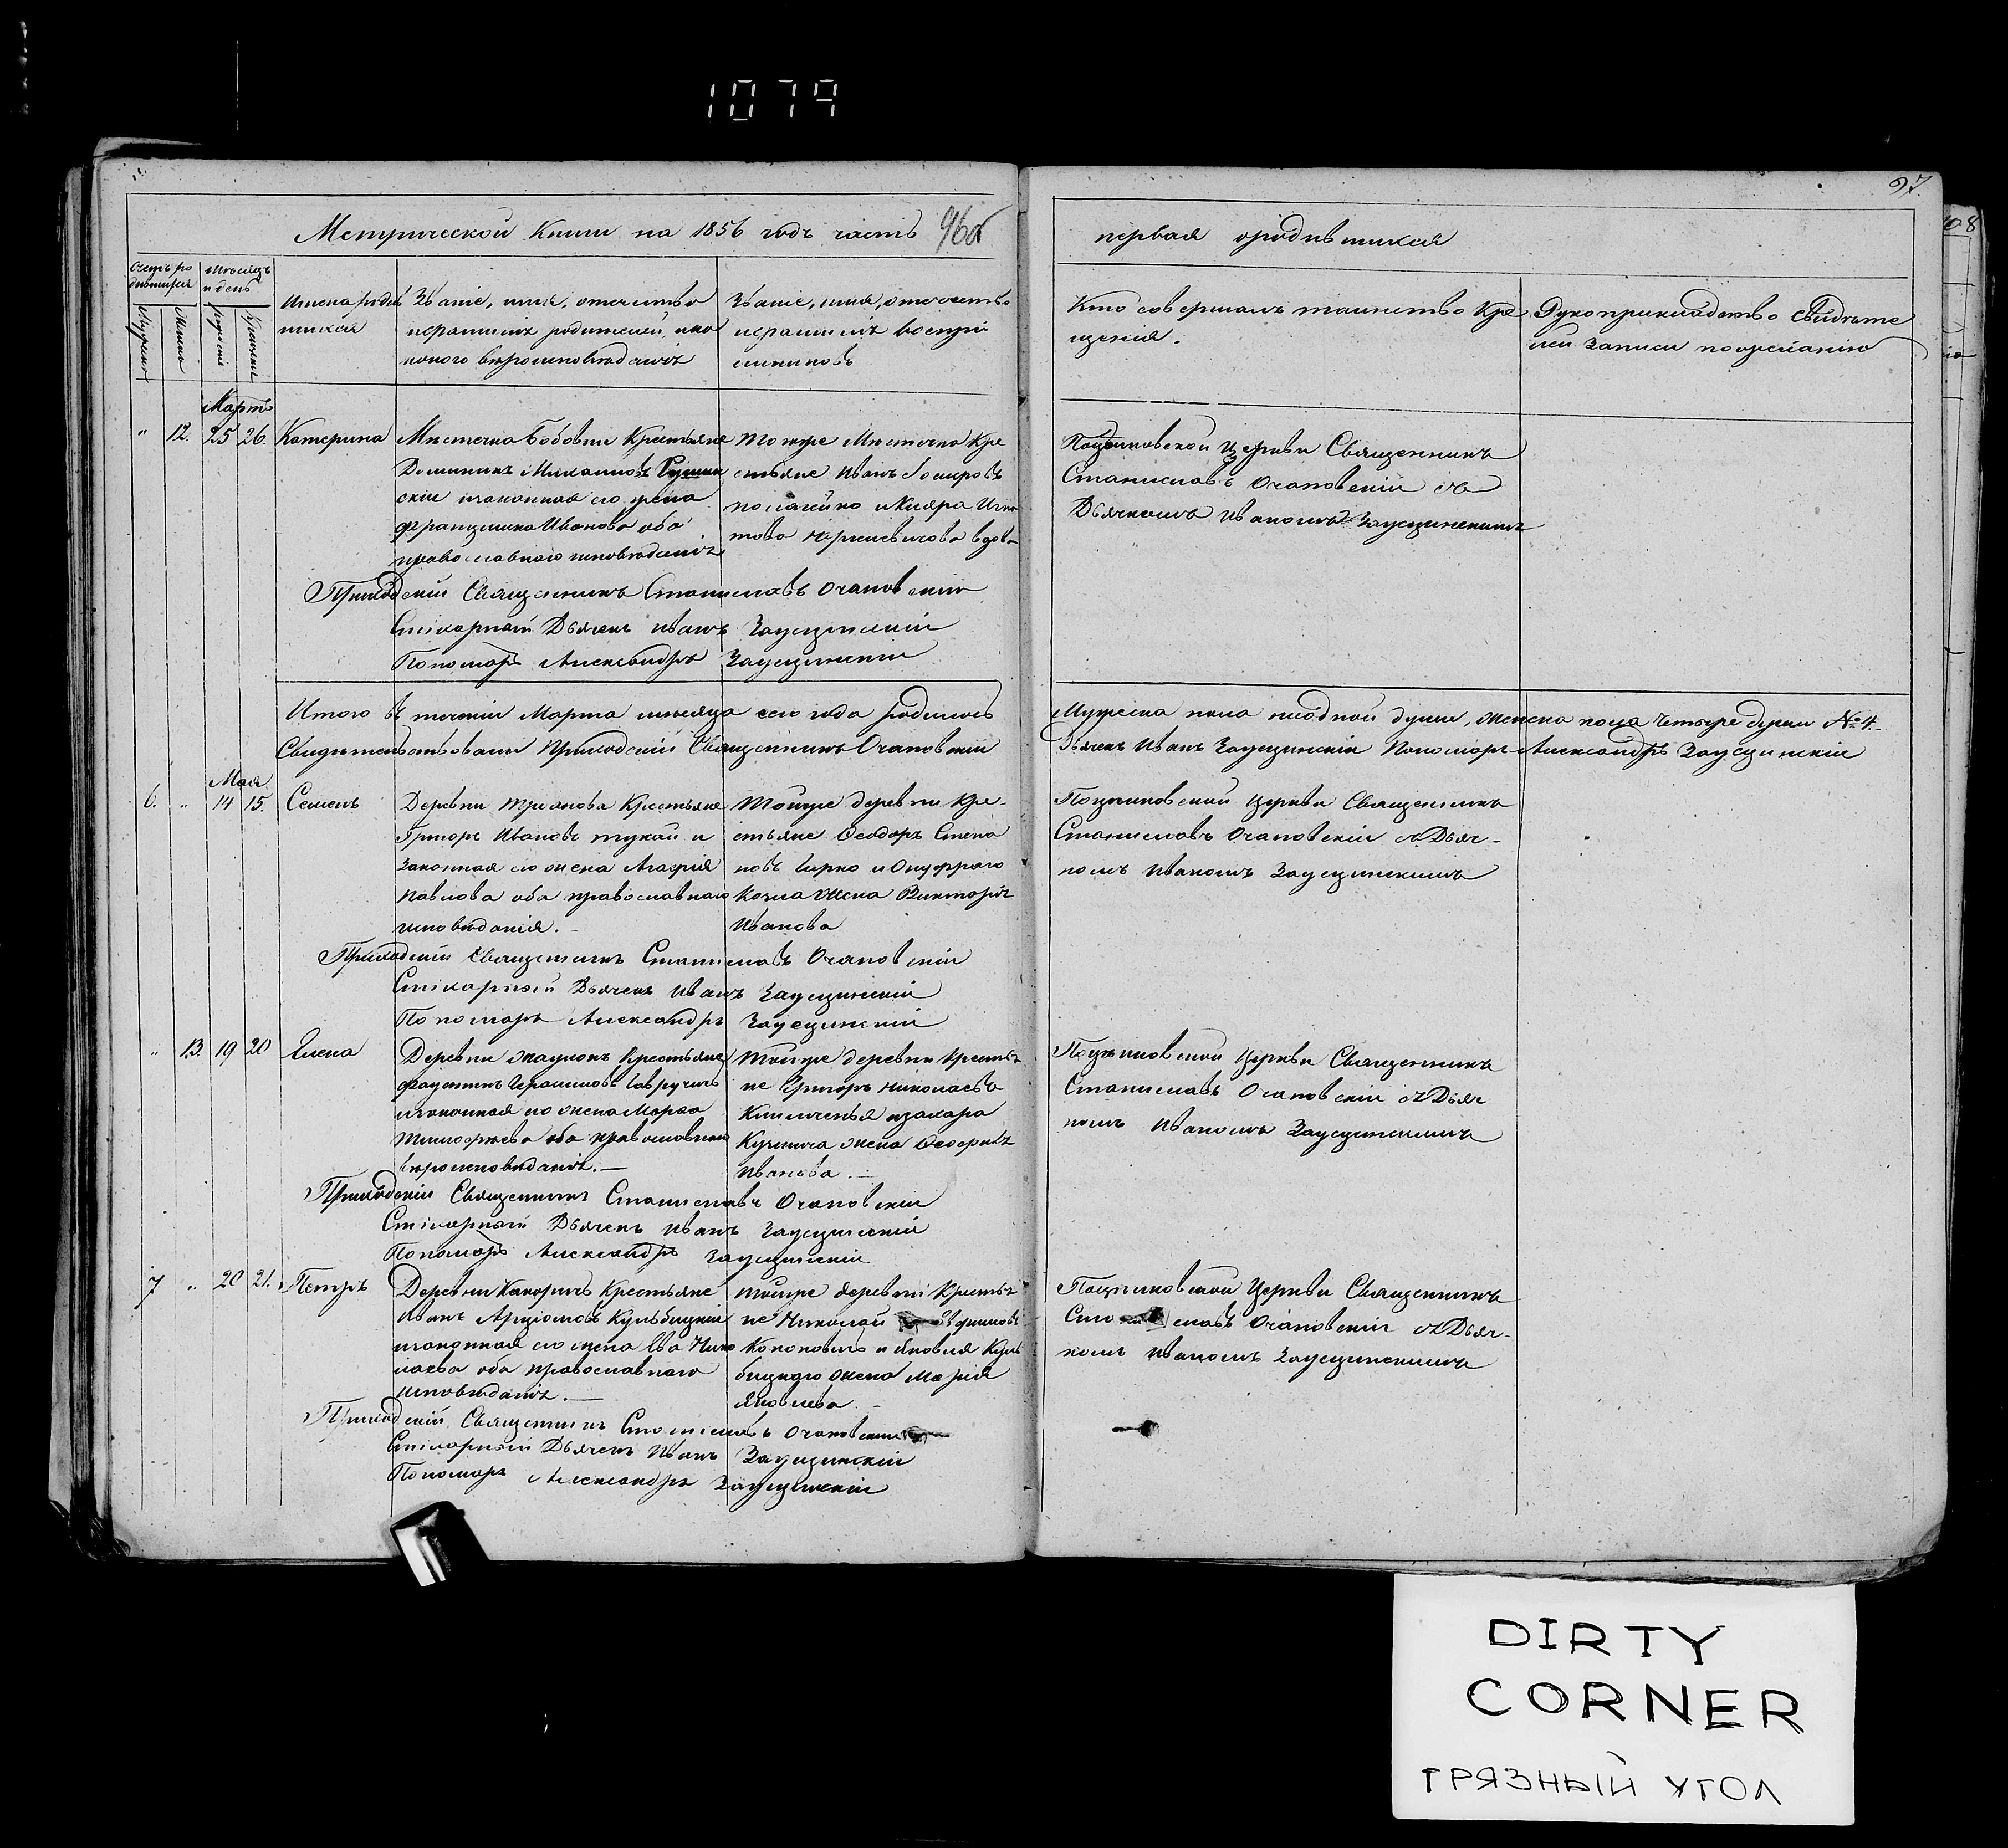 1079
97
108
Метрической Книги на 1856 годъ часть 96об
первая о родившихся
Счетъ ро
дившихся
Мѣсяцъ
и день
Мужеска
Женска
рожденія
Крещенія
Имена родив
шихся
Званіе, имя, отчество
и фамилія родителей, и ка
кого вѣроисповѣданія
Званіе, имя, отчество
и фамилія воспрі
емниковъ
Кто совершалъ таинство Кре
щенія.
Рукоприкладство свидѣте
лей записи по желанію
Мартъ
" 12. 25 26. Катерина
Мѣстечка Бобовни Крестьяне
Доминикъ
скій и законная его жена
Францишка Иванова оба
православнаго исповѣданія
Тогоже Мѣстечка Кре
стьяне Иванъ
вдова
Церкви Священникъ
Станиславъ Очаповскій съ
Дьячкомъ Иваномъ Заусцинскимъ
Приходскій Священникъ Станиславъ Очаповскій
Стихарный Дьячекъ Иванъ Заусцинскій
Пономарь Александръ Заусцинскій
Итого въ теченіи Марта мѣсяца сего года родилось
Мужеска пола ниодной души, женска пола четыре души № 4.
Свидѣтельствовали Приходскій Священникъ Очаповскій
Дьячекъ Иванъ Заусцинскій Пономарь Александръ Заусцинскій
Мая
6. " 14 15. Семенъ
Деревни Крестьяне
Григоръ Ивановъ и
законная его жена Агафія
Павлова оба православнаго
исповѣданія.
Тойже деревни Кре-
стьяне Феодоръ Степа
новъ и Онуфрего
Козла жена Викторія
Иванова
Церкви Священникъ
Станиславъ Очаповскій съ Дьяч-
комъ Иваномъ Заусцинскимъ
Приходскій Священникъ Станиславъ Очаповскій
Стихарный Дьячекъ Иванъ Заусцинскій
Пономарь Александръ Заусцинскій
" 13. 19 20 Елена
Деревни Крестьяне
и законная его жена Марта
Тимофеева оба православнаго
вѣроисповѣданія.
Тойже деревни Крестья
не Григоръ Николаевъ
жена
Иванова.
Церкви Священникъ
Станиславъ Очаповскій съ Дьяч
комъ Иваномъ Заусцинскимъ
Приходскій Священникъ Станиславъ Очаповскій
Стихарный Дьячекъ Иванъ Заусцинскій
Пономарь Александръ Заусцинскій
7 " 20 21. Петръ
Деревни Крестьяне
Иванъ Кульбицкій
и законная его жена Ева Нико
лаева оба православнаго
исповѣданія.
Тойже деревни Крестья
не Николай
Кононовичъ и Яковля Куль
бицкаго жена Марія
Яковлева.
Церкви Священникъ
Станиславъ Очаповскій съ Дьяч-
комъ Иваномъ Заусцинскимъ
Приходскій Священникъ Станиславъ Очаповскій
Стихарный Дьячекъ Иванъ Заусцинскій
Пономарь Александръ Заусцинскій
DIRTY
CORNER
ГРЯЗНЫЙ УГОЛ